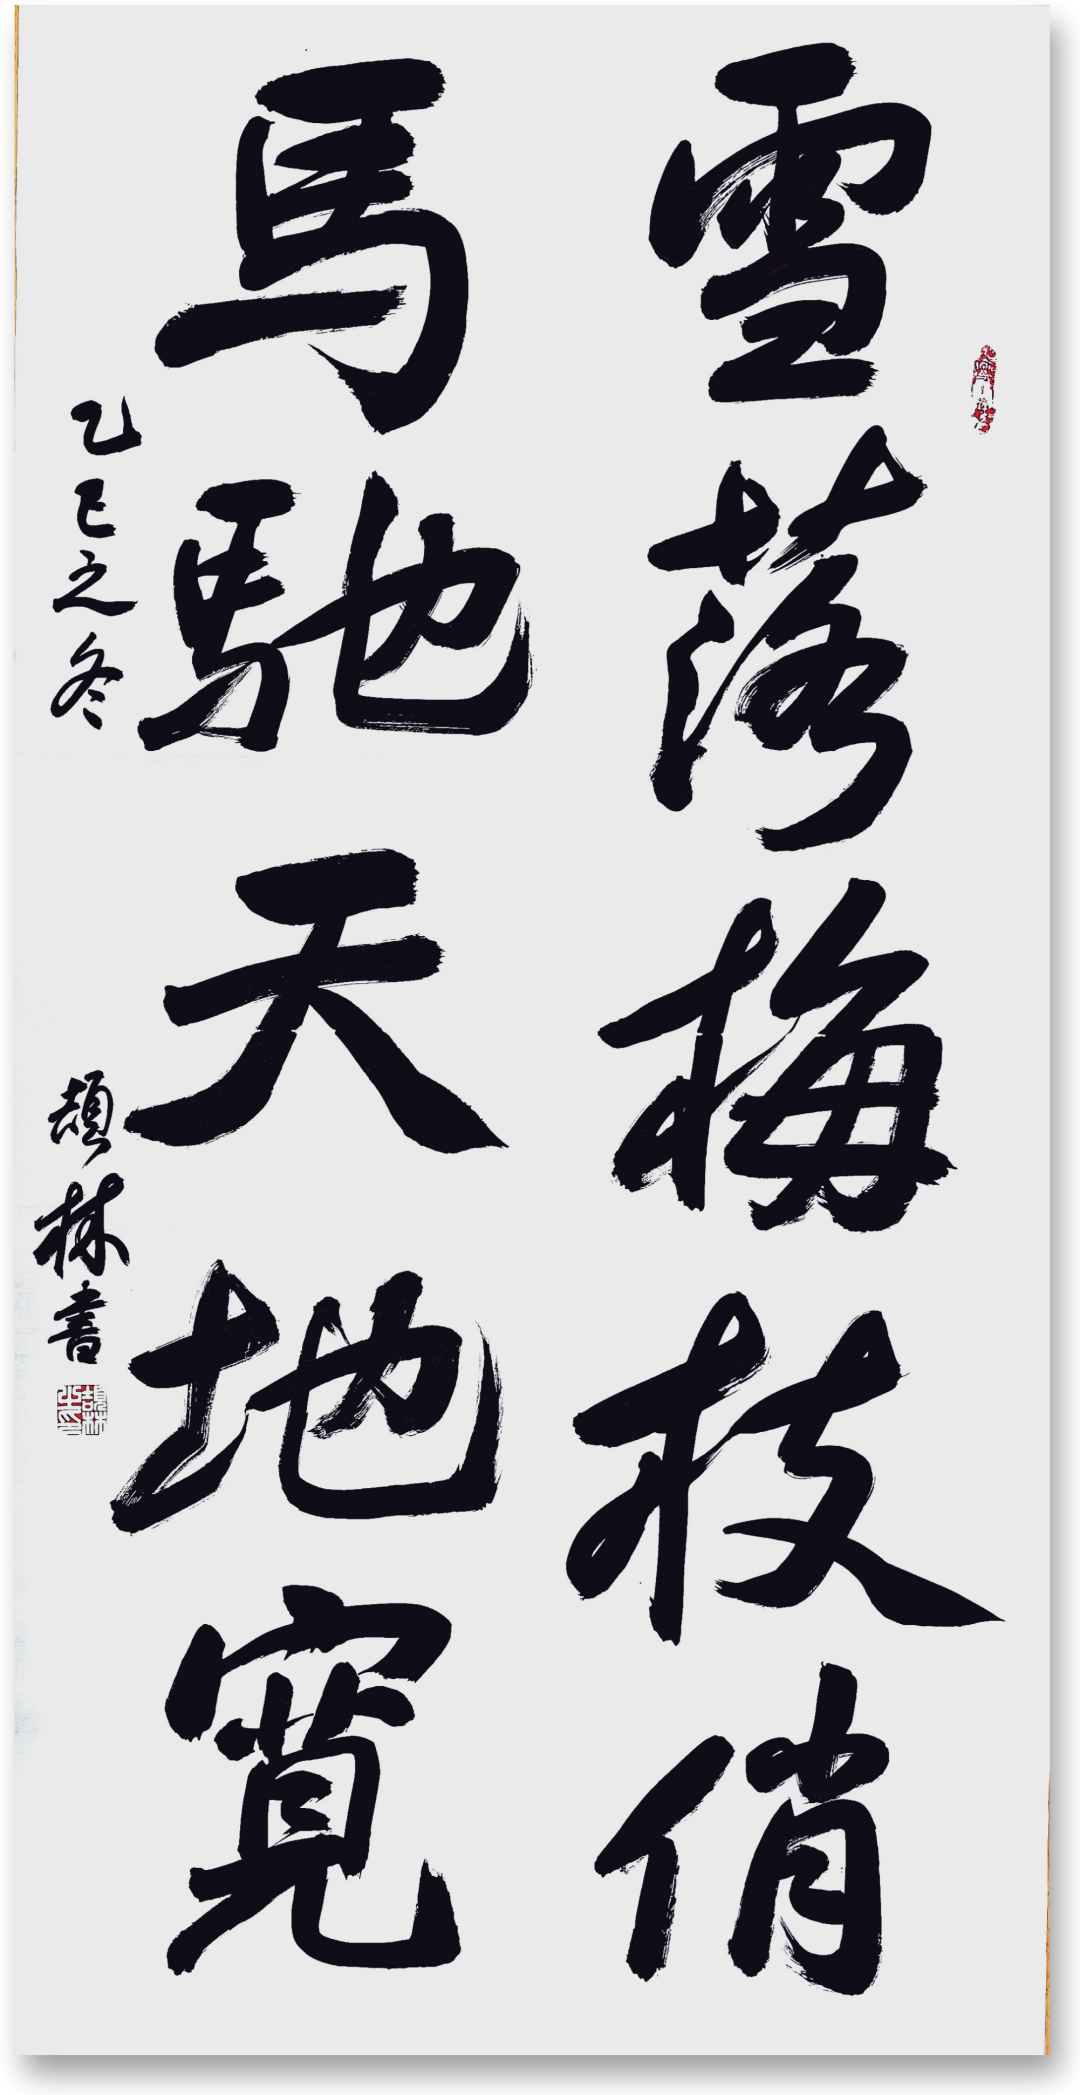 雪落梅枝俏
馬馳天地寬
乙巳之冬
頡林書